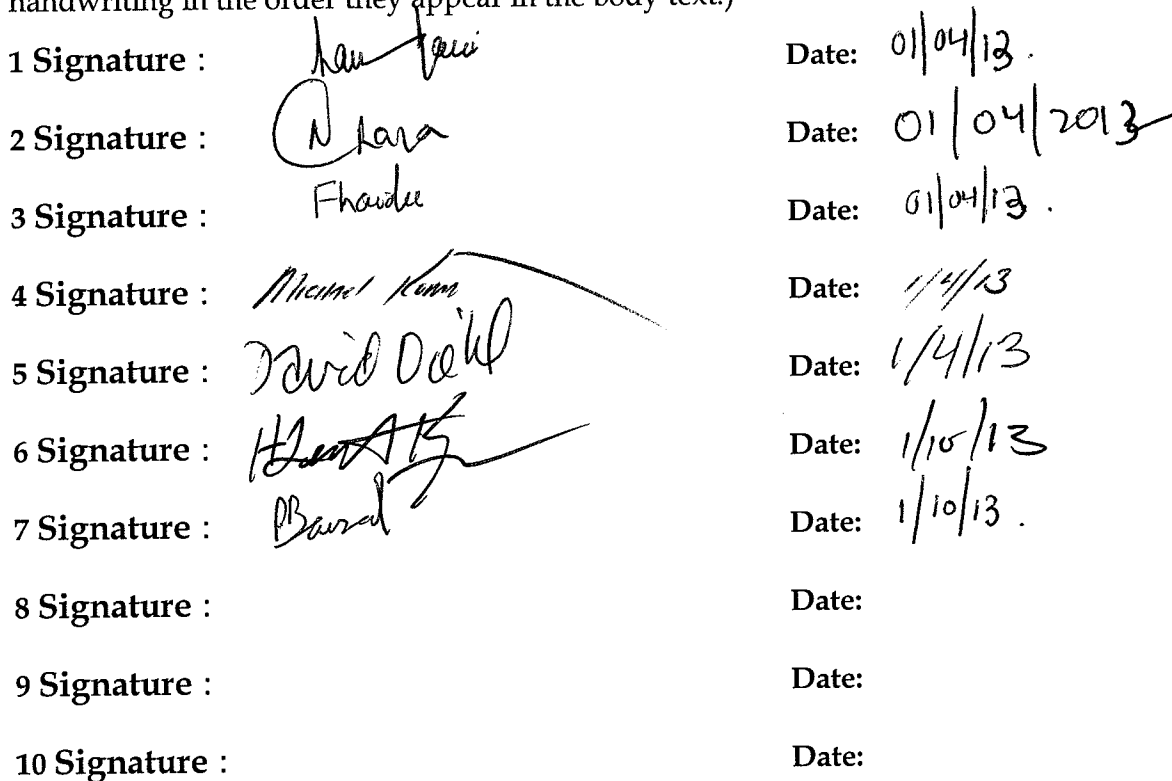 handwriting in the order they appear in the body text.)
1 Signature : Date: 01/04/13.
2 Signature : Date: 01/04/2013
3 Signature : Date: 01/04/13.
4 Signature : Date: 1/4/13
5 Signature : David Date: 1/4/13
6 Signature : Date: 1/10/13
7 Signature : Date: 1/10/13.
8 Signature : Date:
9 Signature : Date:
10 Signature : Date: